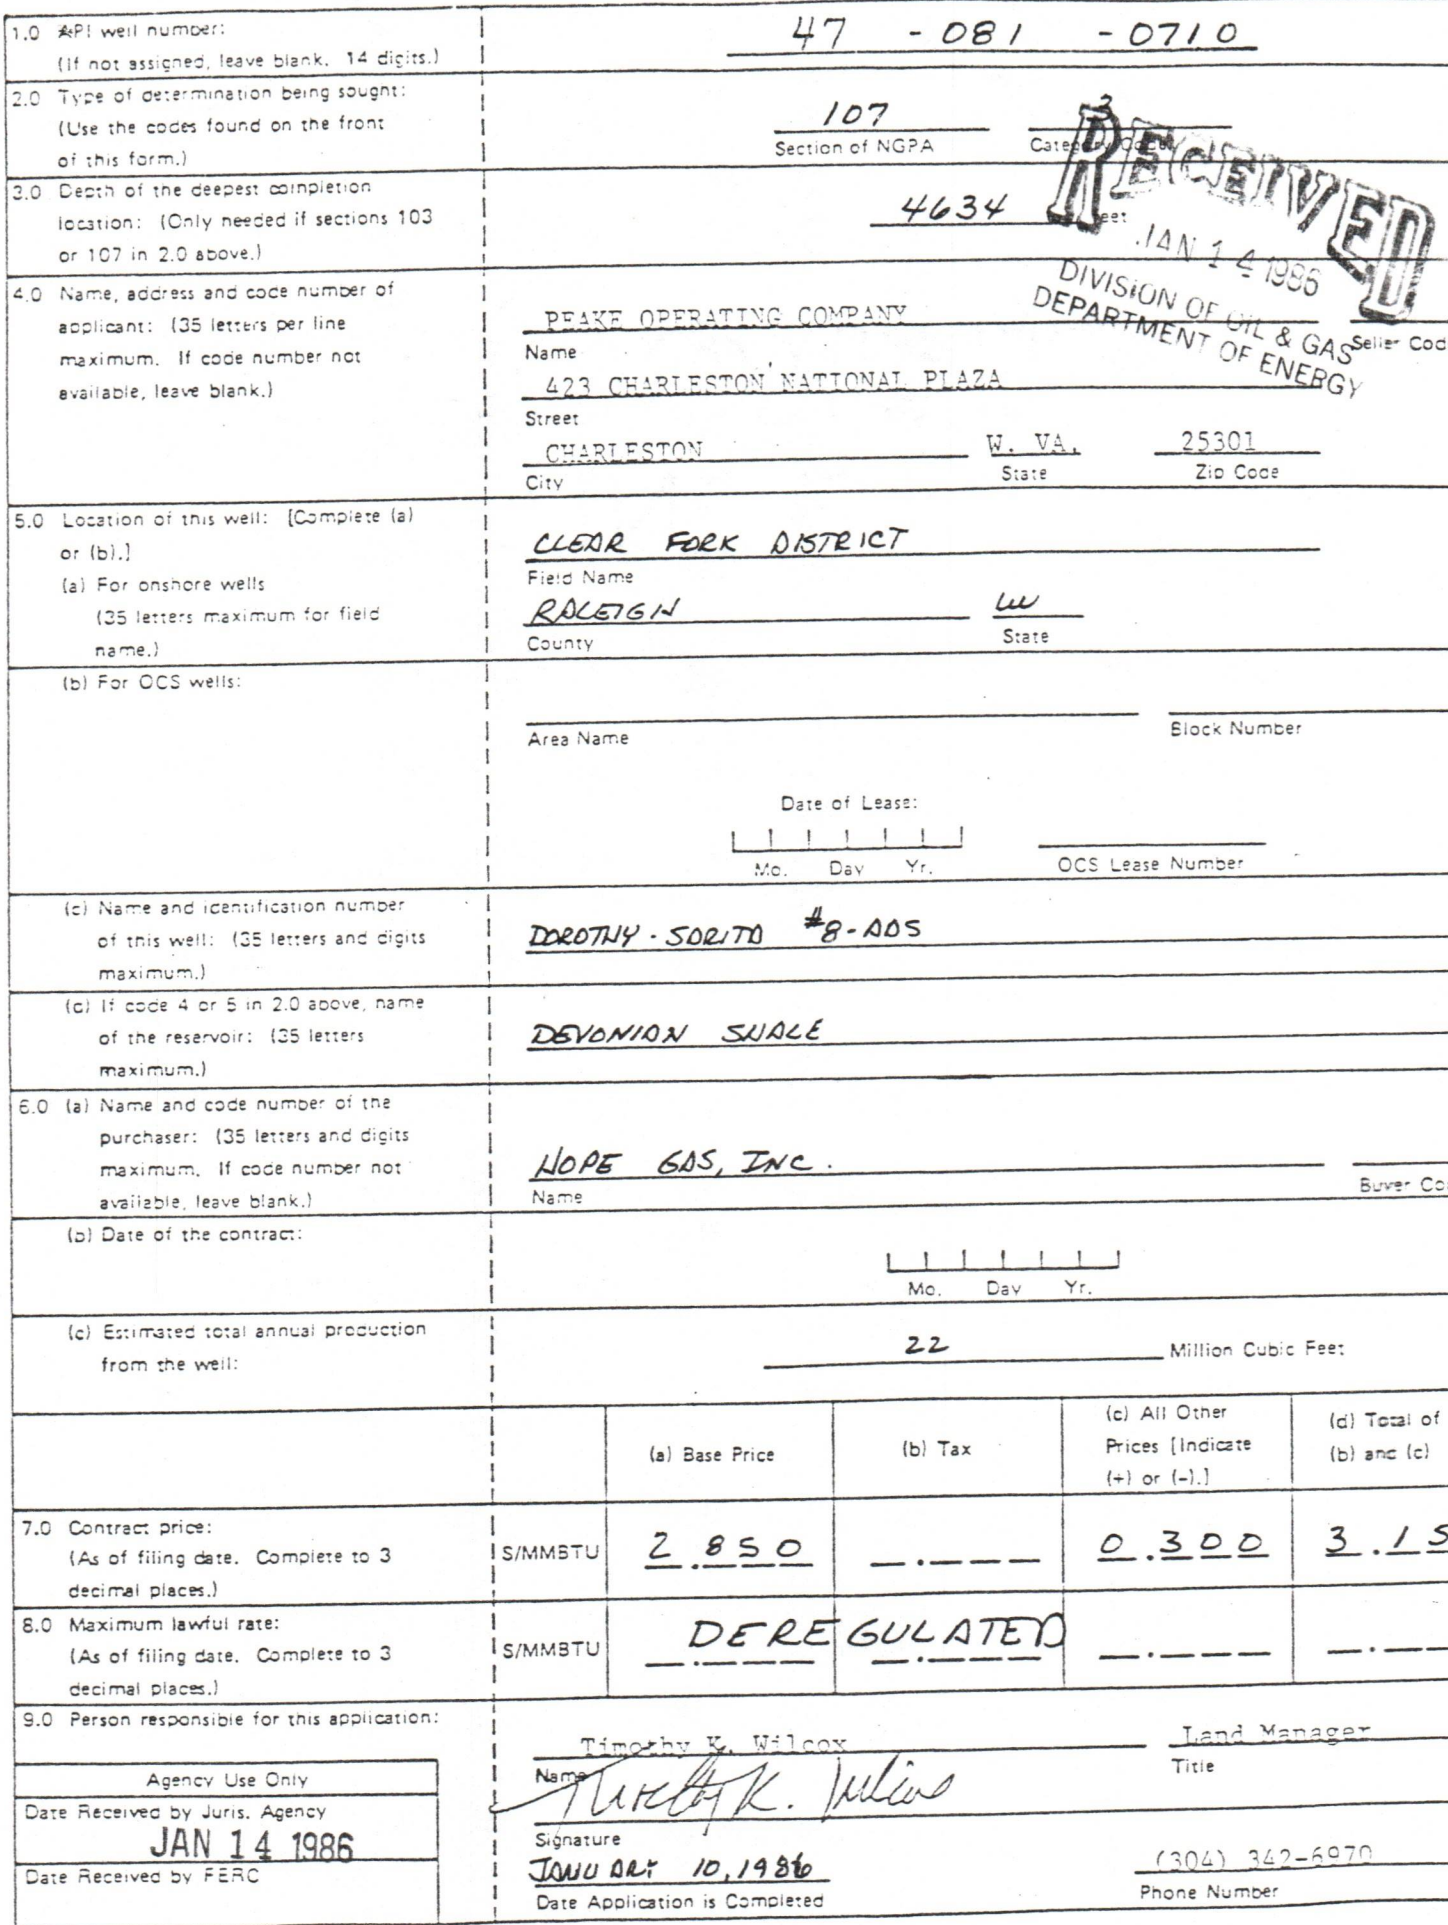 1.0 API well number:
(If not assigned, leave blank. 14 digits.)
47 - 081 - 0710
2.0 Type of determination being sought:
(Use the codes found on the front
of this form.)
107 3
Section of NGPA Category Code
3.0 Depth of the deepest completion
location: (Only needed if sections 103
or 107 in 2.0 above.)
4634 feet
RECEIVED
JAN 14 1986
DIVISION OF OIL & GAS
DEPARTMENT OF ENERGY
4.0 Name, address and code number of
applicant: (35 letters per line
maximum. If code number not
available, leave blank.)
PEAKE OPERATING COMPANY
Name Seller Cod
423 CHARLESTON NATIONAL PLAZA
Street
CHARLESTON W. VA. 25301
City State Zip Code
5.0 Location of this well: [Complete (a)
or (b).]
(a) For onshore wells
(35 letters maximum for field
name.)
CLEAR FORK DISTRICT
Field Name
RALEIGH
County State
(b) For OCS wells:
Area Name Block Number
Date of Lease:
Mo. Day Yr. OCS Lease Number
(c) Name and identification number
of this well: (35 letters and digits
maximum.)
DOROTHY - SARITA #8-ADS
(d) If code 4 or 5 in 2.0 above, name
of the reservoir: (35 letters
maximum.)
DEVONIAN SHALE
6.0 (a) Name and code number of the
purchaser: (35 letters and digits
maximum. If code number not
available, leave blank.)
HOPE GAS, INC.
Name Buyer Co
(b) Date of the contract:
Mo. Day Yr.
(c) Estimated total annual production
from the well:
22 Million Cubic Feet
(a) Base Price
(b) Tax
(c) All Other
Prices [Indicate
(+) or (-).]
(d) Total of
(b) and (c)
7.0 Contract price:
(As of filing date. Complete to 3
decimal places.)
S/MMBTU 2.850 0.300 3.15
8.0 Maximum lawful rate:
(As of filing date. Complete to 3
decimal places.)
S/MMBTU DEREGULATED
9.0 Person responsible for this application:
Timothy K. Wilcox Land Manager
Name Title
Timothy K. Wilcox
Signature
JANUARY 10, 1986 (304) 342-6970
Date Application is Completed Phone Number
Agency Use Only
Date Received by Juris. Agency
JAN 14 1986
Date Received by FERC